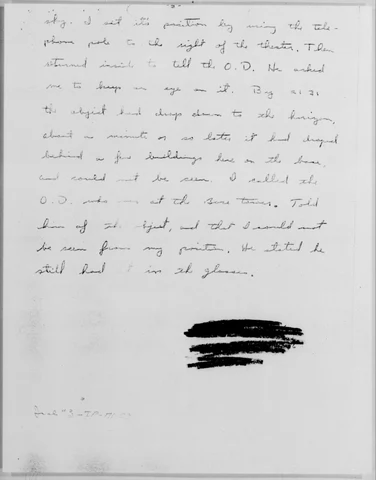 sky. I set its position by using the tele-
phone pole to the right of the theater. Then
returned inside to tell the O.D. He asked
me to keep an eye on it. By 2121
the object had drop down to the horizon,
about a minute or so later it had droped
behind a few buildings here on the base,
and could not be seen. I called the
O.D. who was at the Base Tower. Told
him of the object, and that I could not
be seen from my position. He stated he
still had it in th glasses.